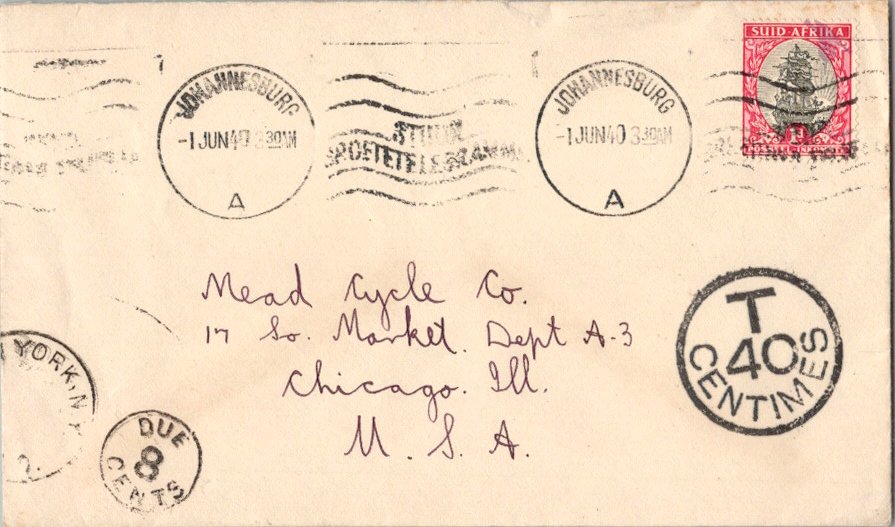 SUID-AFRIKA
1D
JOHANNESBURG
-1 JUN 40 3 30 AM
A
STUUR
GROETETELEGRAMME
JOHANNESBURG
-1 JUN 40 3 30 AM
A
Mead Cycle Co.
17 So. Market. Dept A-3
Chicago. Ill.
U. S. A.
T
40
CENTIMES
YORK, N.Y.
2.
DUE
8
CENTS